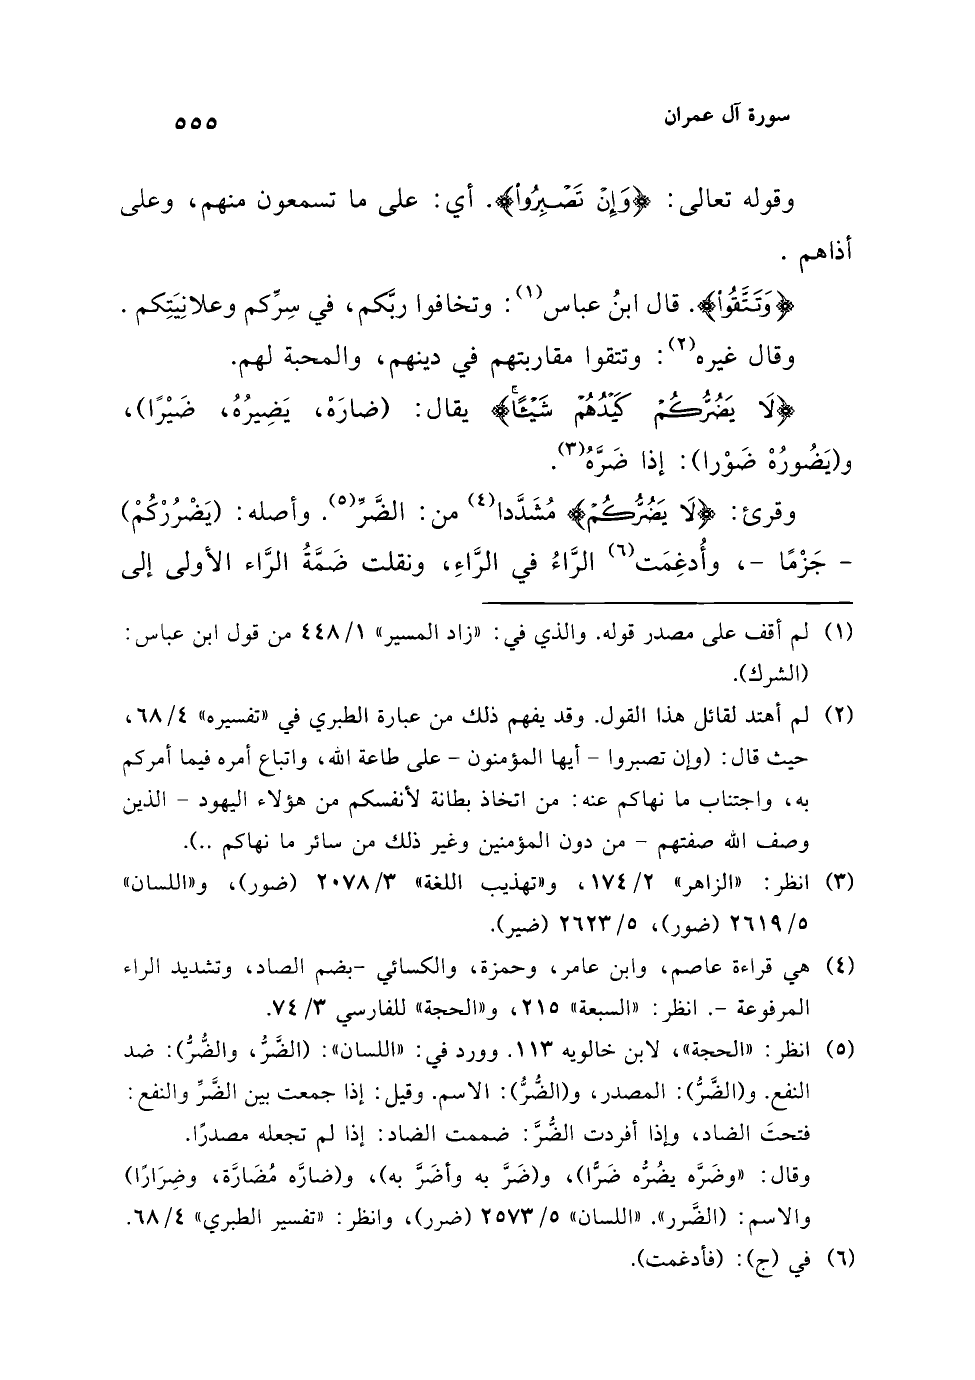 سورة آل عمران
٥٥٥
وقوله تعالى: ﴿وَإِن تَصْبِرُوا﴾. أي: على ما تسمعون منهم، وعلى
أذاهم .
﴿وَتَتَّقُوا﴾. قال ابنُ عباس(١): وتخافوا ربَّكم، في سِرِّكم وعلانِيَتِكم .
وقال غيره(٢): وتتقوا مقاربتهم في دينهم، والمحبة لهم.
﴿لَا يَضُرُّكُمْ كَيْدُهُمْ شَيْئًا﴾ يقال: (ضارَهْ، يَضِيرُهُ، ضَيْرًا)،
و(يَضُورُهْ ضَوْرا): إذا ضَرَّهُ(٣).
وقرئ: ﴿لَا يَضُرُّكُمْ﴾ مُشَدَّدا(٤) من: الضَّرِّ(٥). وأصله: (يَضْرُرْكُمْ)
- جَزْمًا -، وأُدغِمَت(٦) الرَّاءُ في الرَّاءِ، ونقلت ضَمَّةُ الرَّاء الأولى إلى
(١) لم أقف على مصدر قوله. والذي في: «زاد المسير» ١/ ٤٤٨ من قول ابن عباس:
(الشرك).
(٢) لم أهتد لقائل هذا القول. وقد يفهم ذلك من عبارة الطبري في «تفسيره» ٤/ ٦٨،
حيث قال: (وإن تصبروا - أيها المؤمنون - على طاعة الله، واتباع أمره فيما أمركم
به، واجتناب ما نهاكم عنه: من اتخاذ بطانة لأنفسكم من هؤلاء اليهود - الذين
وصف الله صفتهم - من دون المؤمنين وغير ذلك من سائر ما نهاكم ..).
(٣) انظر: «الزاهر» ٢/ ١٧٤، و«تهذيب اللغة» ٣/ ٢٠٧٨ (ضور)، و«اللسان»
٥/ ٢٦١٩ (ضور)، ٥/ ٢٦٢٣ (ضير).
(٤) هي قراءة عاصم، وابن عامر، وحمزة، والكسائي -بضم الصاد، وتشديد الراء
المرفوعة -. انظر: «السبعة» ٢١٥، و«الحجة» للفارسي ٣/ ٧٤.
(٥) انظر: «الحجة»، لابن خالويه ١١٣. وورد في: «اللسان»: (الضَّرُّ، والضُّرُّ): ضد
النفع. و(الضَّرُّ): المصدر، و(الضُّرُّ): الاسم. وقيل: إذا جمعت بين الضَّرِّ والنفع:
فتحتَ الضاد، وإذا أفردت الضُّرَّ: ضممت الضاد: إذا لم تجعله مصدرًا.
وقال: «وضَرَّه يضُرُّه ضَرًّا)، و(ضَرَّ به وأضَرَّ به)، و(ضارَّه مُضَارَّة، وضِرَارًا)
والاسم: (الضَّرر». «اللسان» ٥/ ٢٥٧٣ (ضرر)، وانظر: «تفسير الطبري» ٤/ ٦٨.
(٦) في (ج): (فأدغمت).